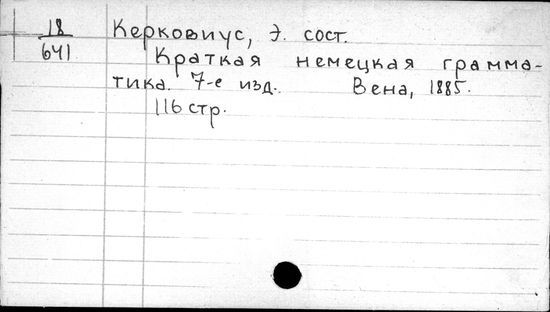 18
641
Керковиус, Э. сост.
Краткая немецкая грамма-
тика. 7-е изд. Вена, 1885.
116 стр.